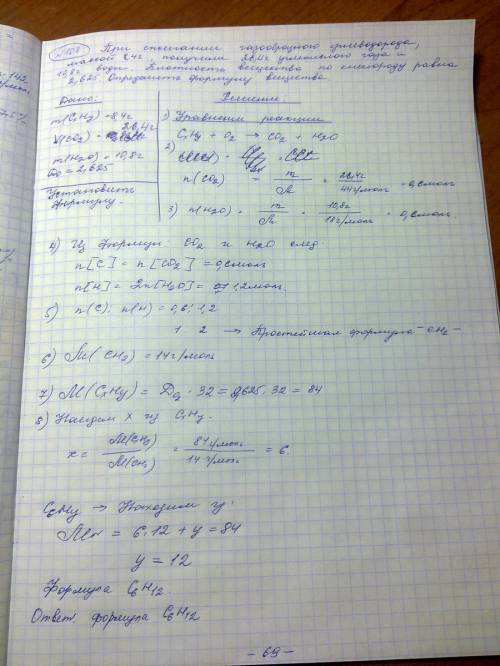 При сгорании газообразного углеводорода,
массой 8,4г получили 26,4г углекислого газа и
10,8г воды. Плотность вещества по кислороду равна
2,625. Определите формулу вещества
Дано:
m(CxHy) = 8,4г
26,4г
m(H2O) = 10,8г
= 2,625
Установить
формулу.
Решение:
1) Уравнение реакции
CxHy + O2 → CO2 + H2O
2)
n(CO2) = m/M = 26,4г/44г/моль = 0,6моль
3) n(H2O) = m/M = 10,8г/18г/моль = 0,6моль.
4) Из формул: CO2 и H2O след.
n[C] = n[CO2] = 0,6моль
n[H] = 2n[H2O] = 1,2моль.
5) n(C): n(H) = 0,6: 1,2
1 2 → Простейшая формула - CH2 -
6) M(CH2) = 14г/моль
7) M(CxHy) = DO2 · 32 = 2,625 · 32 = 84
8) Находим x из CxHy.
= 6.
C6Hy → Находим y:
= 6·12 + y = 84
y = 12
Формула C6H12
Ответ: формула C6H12
- 69 -